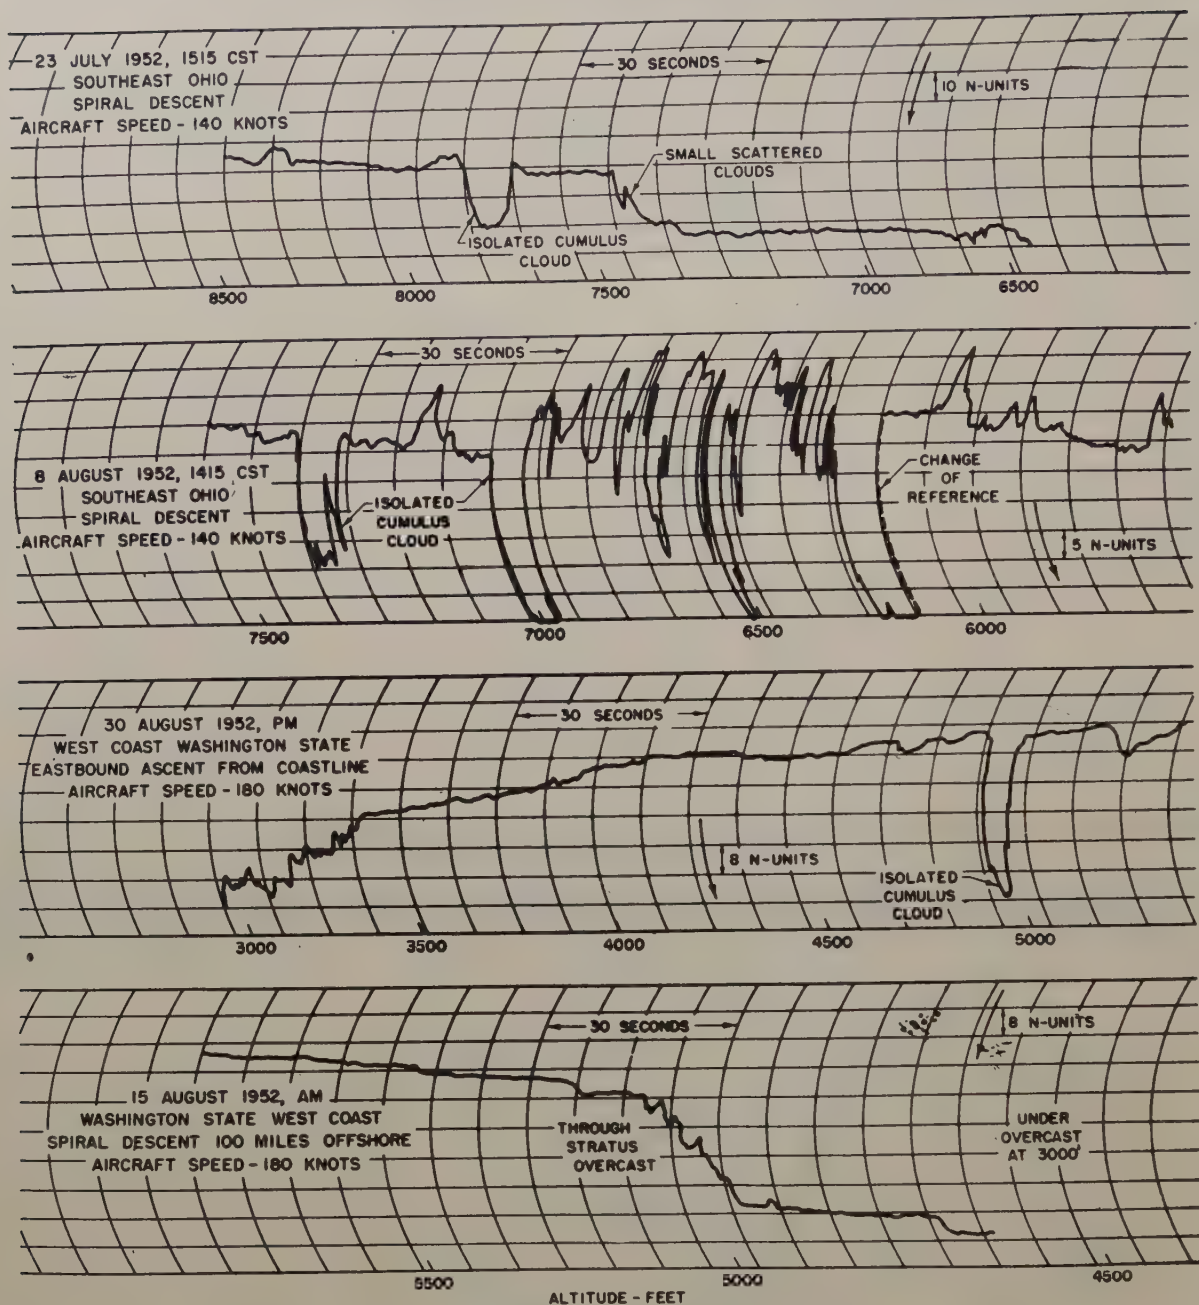 23 JULY 1952, 1515 CST
SOUTHEAST OHIO
SPIRAL DESCENT
AIRCRAFT SPEED - 140 KNOTS
30 SECONDS
10 N-UNITS
SMALL SCATTERED
CLOUDS
ISOLATED CUMULUS
CLOUD
8500
8000
7500
7000
6500
30 SECONDS
8 AUGUST 1952, 1415 CST
SOUTHEAST OHIO
SPIRAL DESCENT
AIRCRAFT SPEED - 140 KNOTS
ISOLATED
CUMULUS
CLOUD
CHANGE
OF
REFERENCE
5 N-UNITS
7500
7000
6500
6000
30 AUGUST 1952, PM
WEST COAST WASHINGTON STATE
EASTBOUND ASCENT FROM COASTLINE
AIRCRAFT SPEED - 180 KNOTS
30 SECONDS
8 N-UNITS
ISOLATED
CUMULUS
CLOUD
3000
3500
4000
4500
5000
30 SECONDS
8 N-UNITS
15 AUGUST 1952, AM
WASHINGTON STATE WEST COAST
SPIRAL DESCENT 100 MILES OFFSHORE
AIRCRAFT SPEED - 180 KNOTS
THROUGH
STRATUS
OVERCAST
UNDER
OVERCAST
AT 3000'
5500
5000
4500
ALTITUDE - FEET